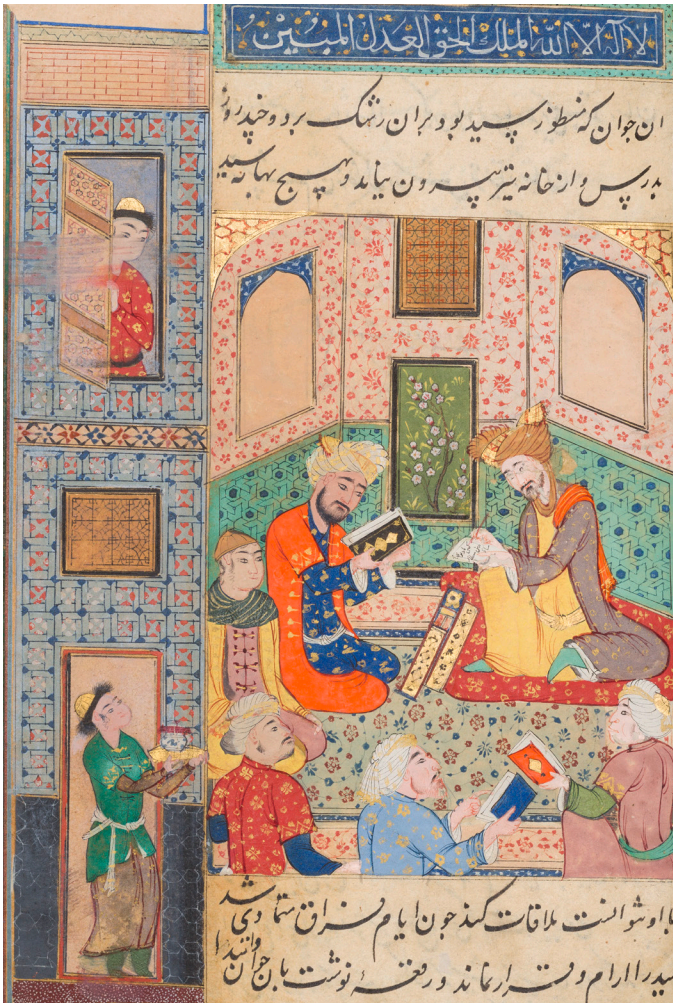 لا اله الا الله الملك الحق العدل المبين
ان جوان که منظور سید بود بران رشک برد و چند روز
بدرس و از خانه نیز بیرون نیامد و بهیچ بهانه سید
با او نتوانست ملاقات کند چون ایام فراق متمادی شد
سید را ارام و قرار نماند و رقعهٔ نوشت بان جوان